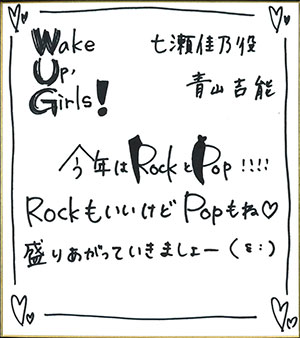 Wake
Up,
Girls!
七瀬佳乃役
青山吉能
今年はRockとPop!!!!
RockもいいけどPopもね♡
盛りあがっていきましょー(ε:)